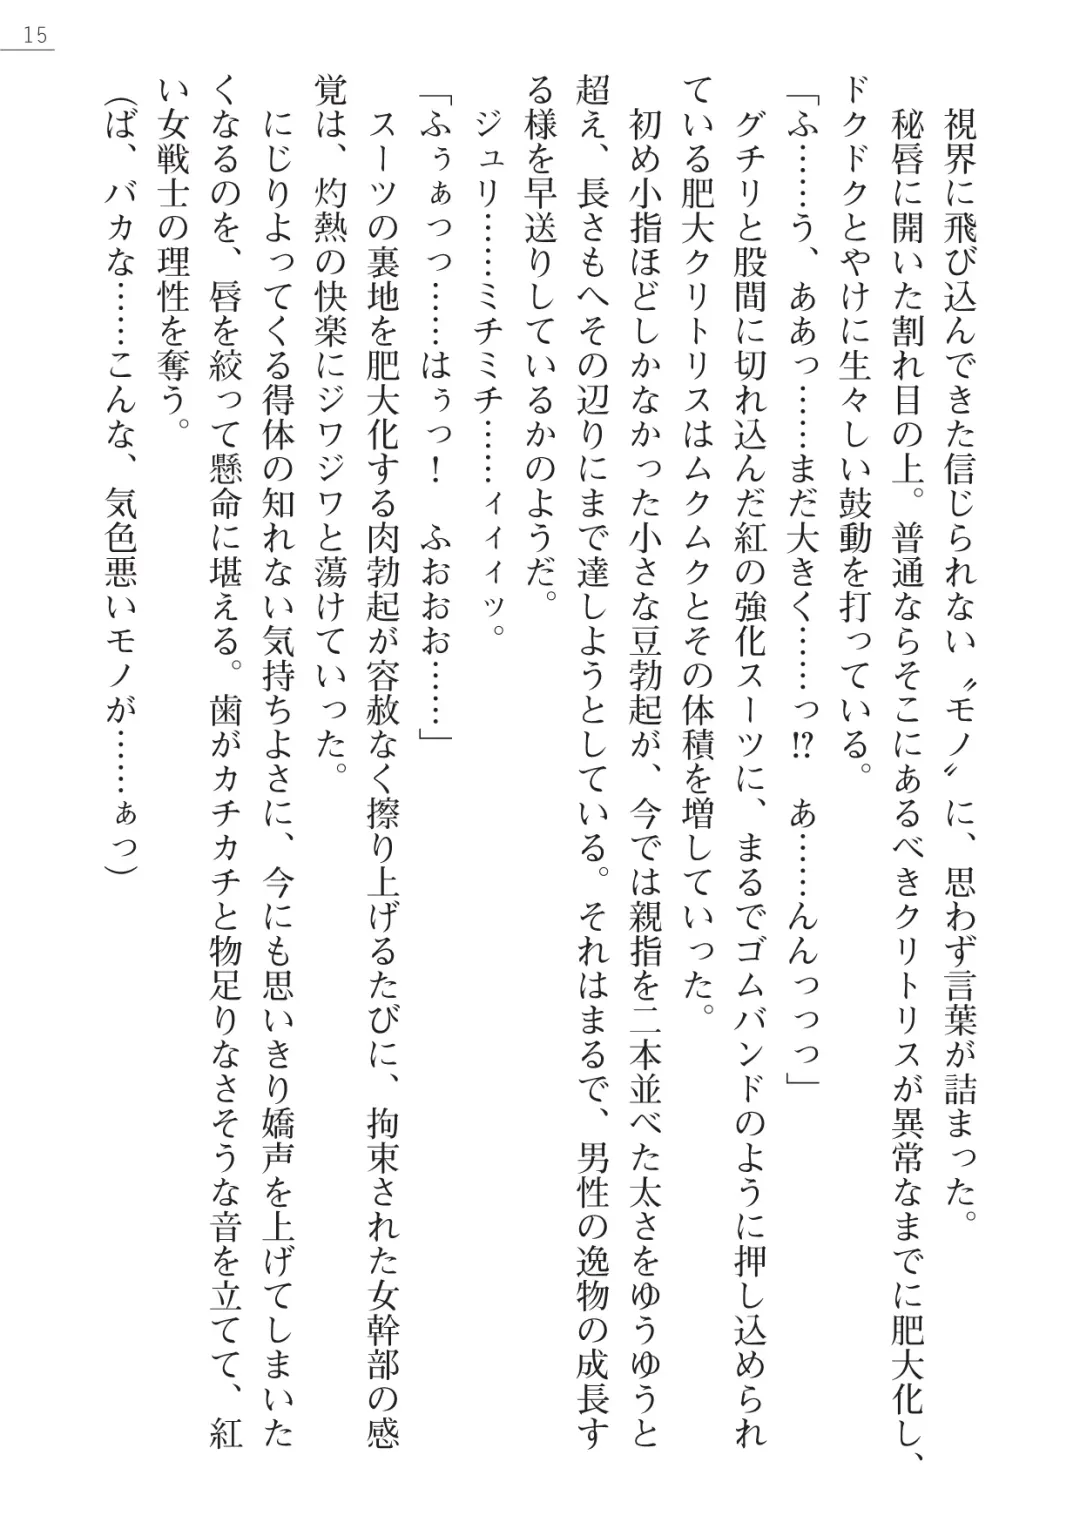 15
視界に飛び込んできた信じられない〝モノ〟に、思わず言葉が詰まった。
秘唇に開いた割れ目の上。普通ならそこにあるべきクリトリスが異常なまでに肥大化し、
ドクドクとやけに生々しい鼓動を打っている。
「ふ……う、ああっ……まだ大きく……っ!?　あ……んんっっっ」
グチリと股間に切れ込んだ紅の強化スーツに、まるでゴムバンドのように押し込められ
ている肥大クリトリスはムクムクとその体積を増していった。
初め小指ほどしかなかった小さな豆勃起が、今では親指を二本並べた太さをゆうゆうと
超え、長さもへその辺りにまで達しようとしている。それはまるで、男性の逸物の成長す
る様を早送りしているかのようだ。
ジュリ……ミチミチ……ィィィッ。
「ふぅぁっっ……はぅっ！　ふおおお……」
スーツの裏地を肥大化する肉勃起が容赦なく擦り上げるたびに、拘束された女幹部の感
覚は、灼熱の快楽にジワジワと蕩けていった。
にじりよってくる得体の知れない気持ちよさに、今にも思いきり嬌声を上げてしまいた
くなるのを、唇を絞って懸命に堪える。歯がカチカチと物足りなさそうな音を立てて、紅
い女戦士の理性を奪う。
（ば、バカな……こんな、気色悪いモノが……ぁっ）